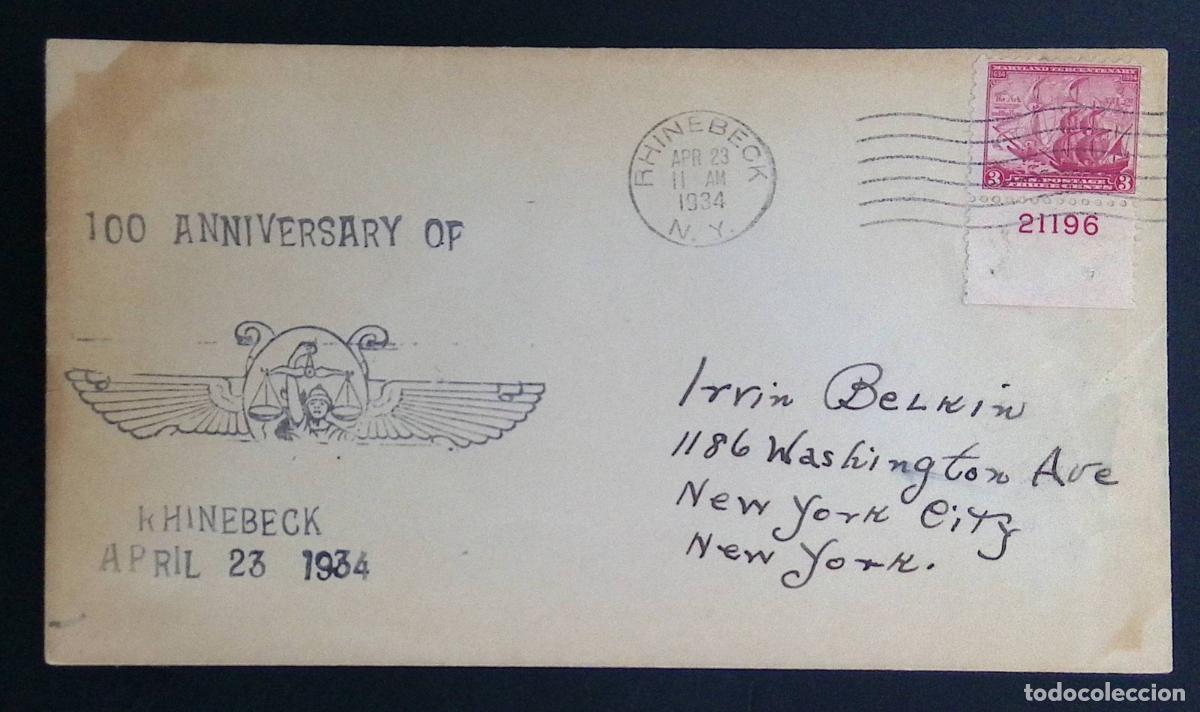 100 ANNIVERSARY OF
RHINEBECK
APRIL 23 1934
RHINEBECK
APR 23
11 AM
1934
N. Y.
MARYLAND TERCENTENARY
1634 1934
3 U.S. POSTAGE 3
THREE CENTS
21196
Irvin Belkin
1186 Washington Ave
New York City
New York.
todocoleccion